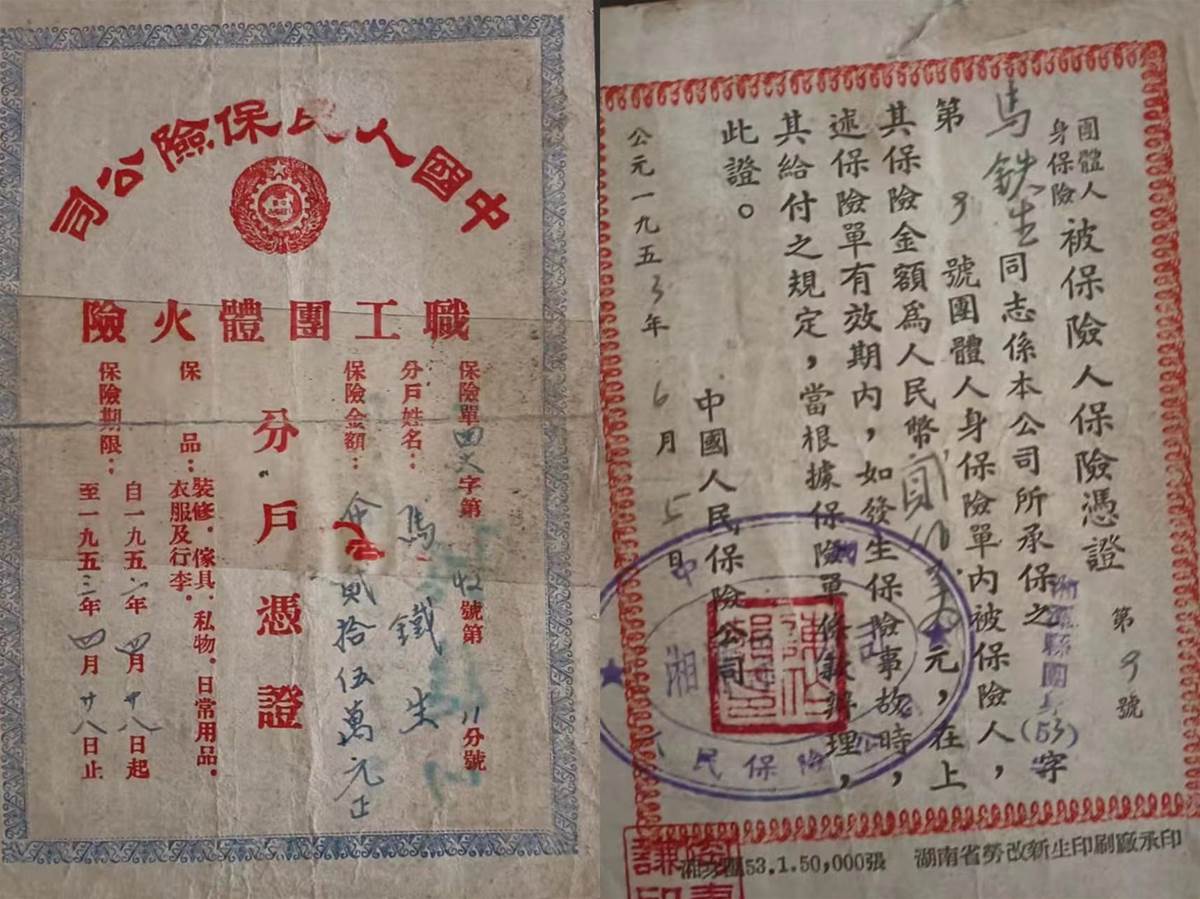 中國人民保險公司
職工團體火險
分戶憑證
保險單四火字第42號第11分號
分戶姓名：馬鐵生
保險金額：貳拾伍萬元正
保品：裝修．傢具．私物．日常用品．
衣服及行李．
保險期限：自一九五二年四月廿八日起
至一九五三年四月廿八日止
團體人身保險被保險人保險憑證 第9號
(53)字
馬鉄生同志係本公司所承保之
第9號團體人身保險單內被保險人，
其保險金額爲人民幣貳佰萬元，在上
述保險單有效期內，如發生保險事故時，
其給付之規定，當根據保險單條款辦理，
此證。
中國人民保險公司
公元一九五3年6月5日
湘
民保險
53.1.50,000張 湖南省勞改新生印刷廠承印